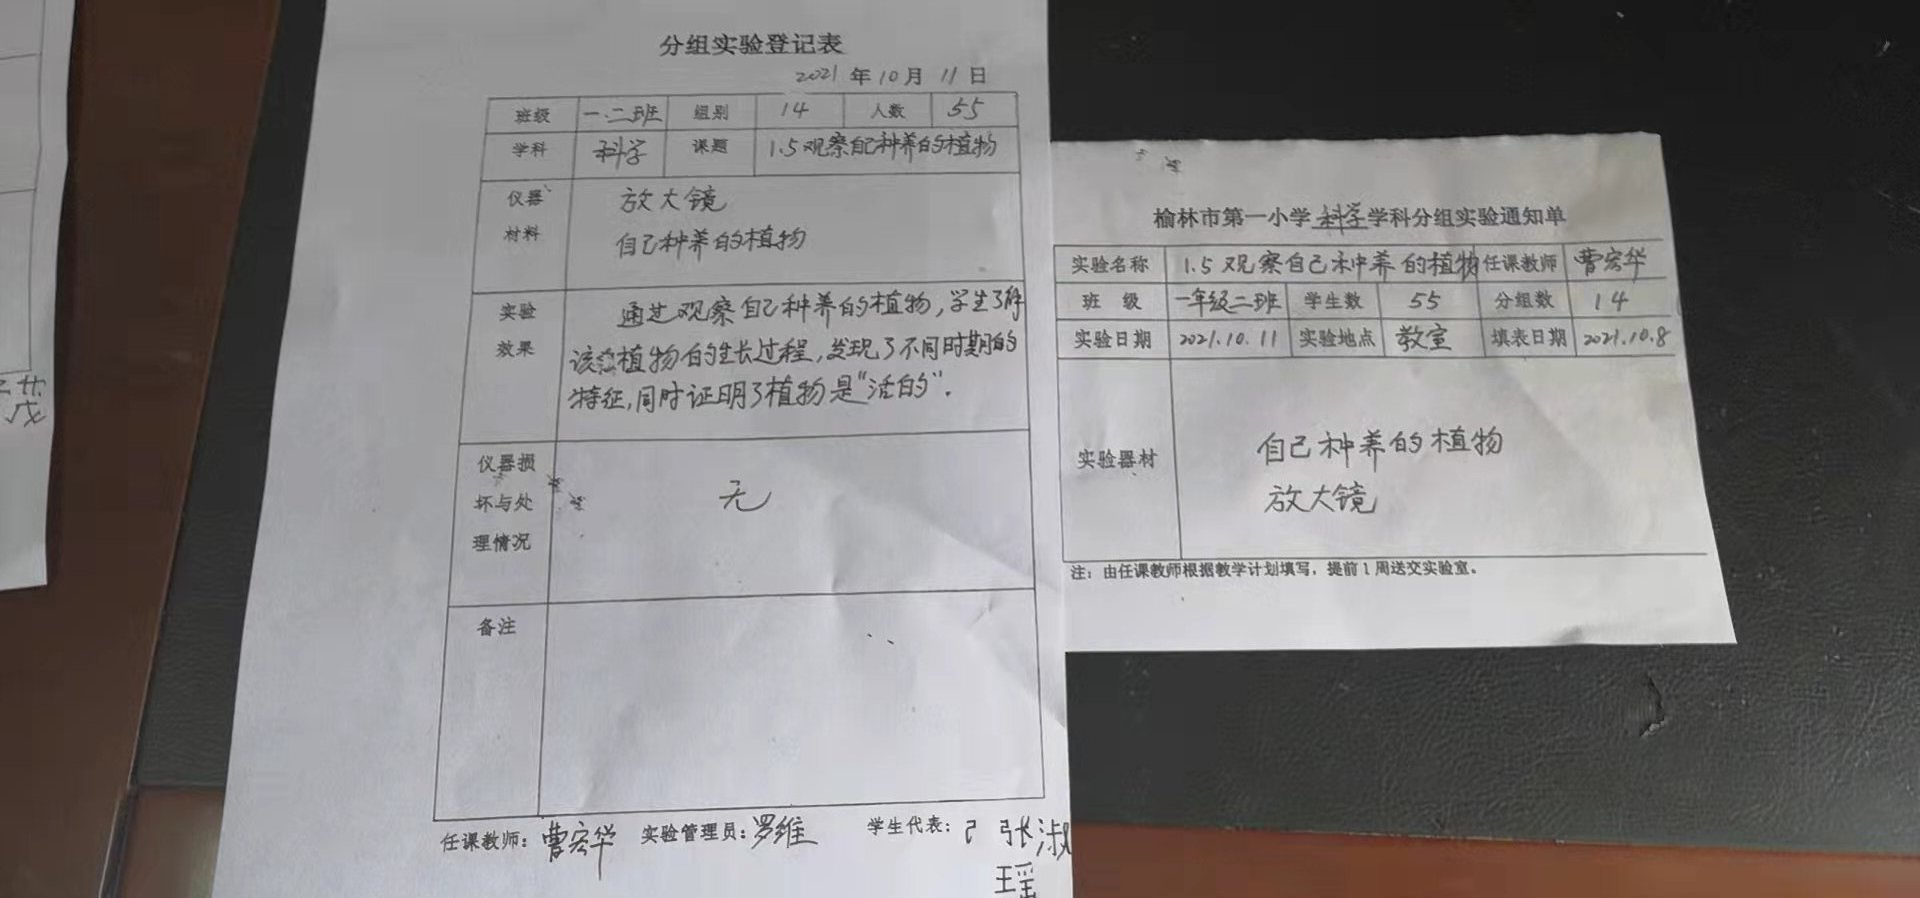 分组实验登记表
2021年10月11日
班级 一.二班 组别 14 人数 55
学科 科学 课题 1.5观察自己种养的植物
仪器 放大镜
材料 自己种养的植物
实验 通过观察自己种养的植物,学生了解
效果 该植物的生长过程,发现了不同时期的
特征,同时证明了植物是“活的”.
仪器损
坏与处 无
理情况
备注
任课教师:曹宏华 实验管理员:罗维 学生代表: 张淑
王瑶
榆林市第一小学科学学科分组实验通知单
实验名称 1.5观察自己种养的植物 任课教师 曹宏华
班 级 一年级二班 学生数 55 分组数 14
实验日期 2021.10.11 实验地点 教室 填表日期 2021.10.8
实验器材 自己种养的植物
放大镜
注:由任课教师根据教学计划填写,提前1周送交实验室。